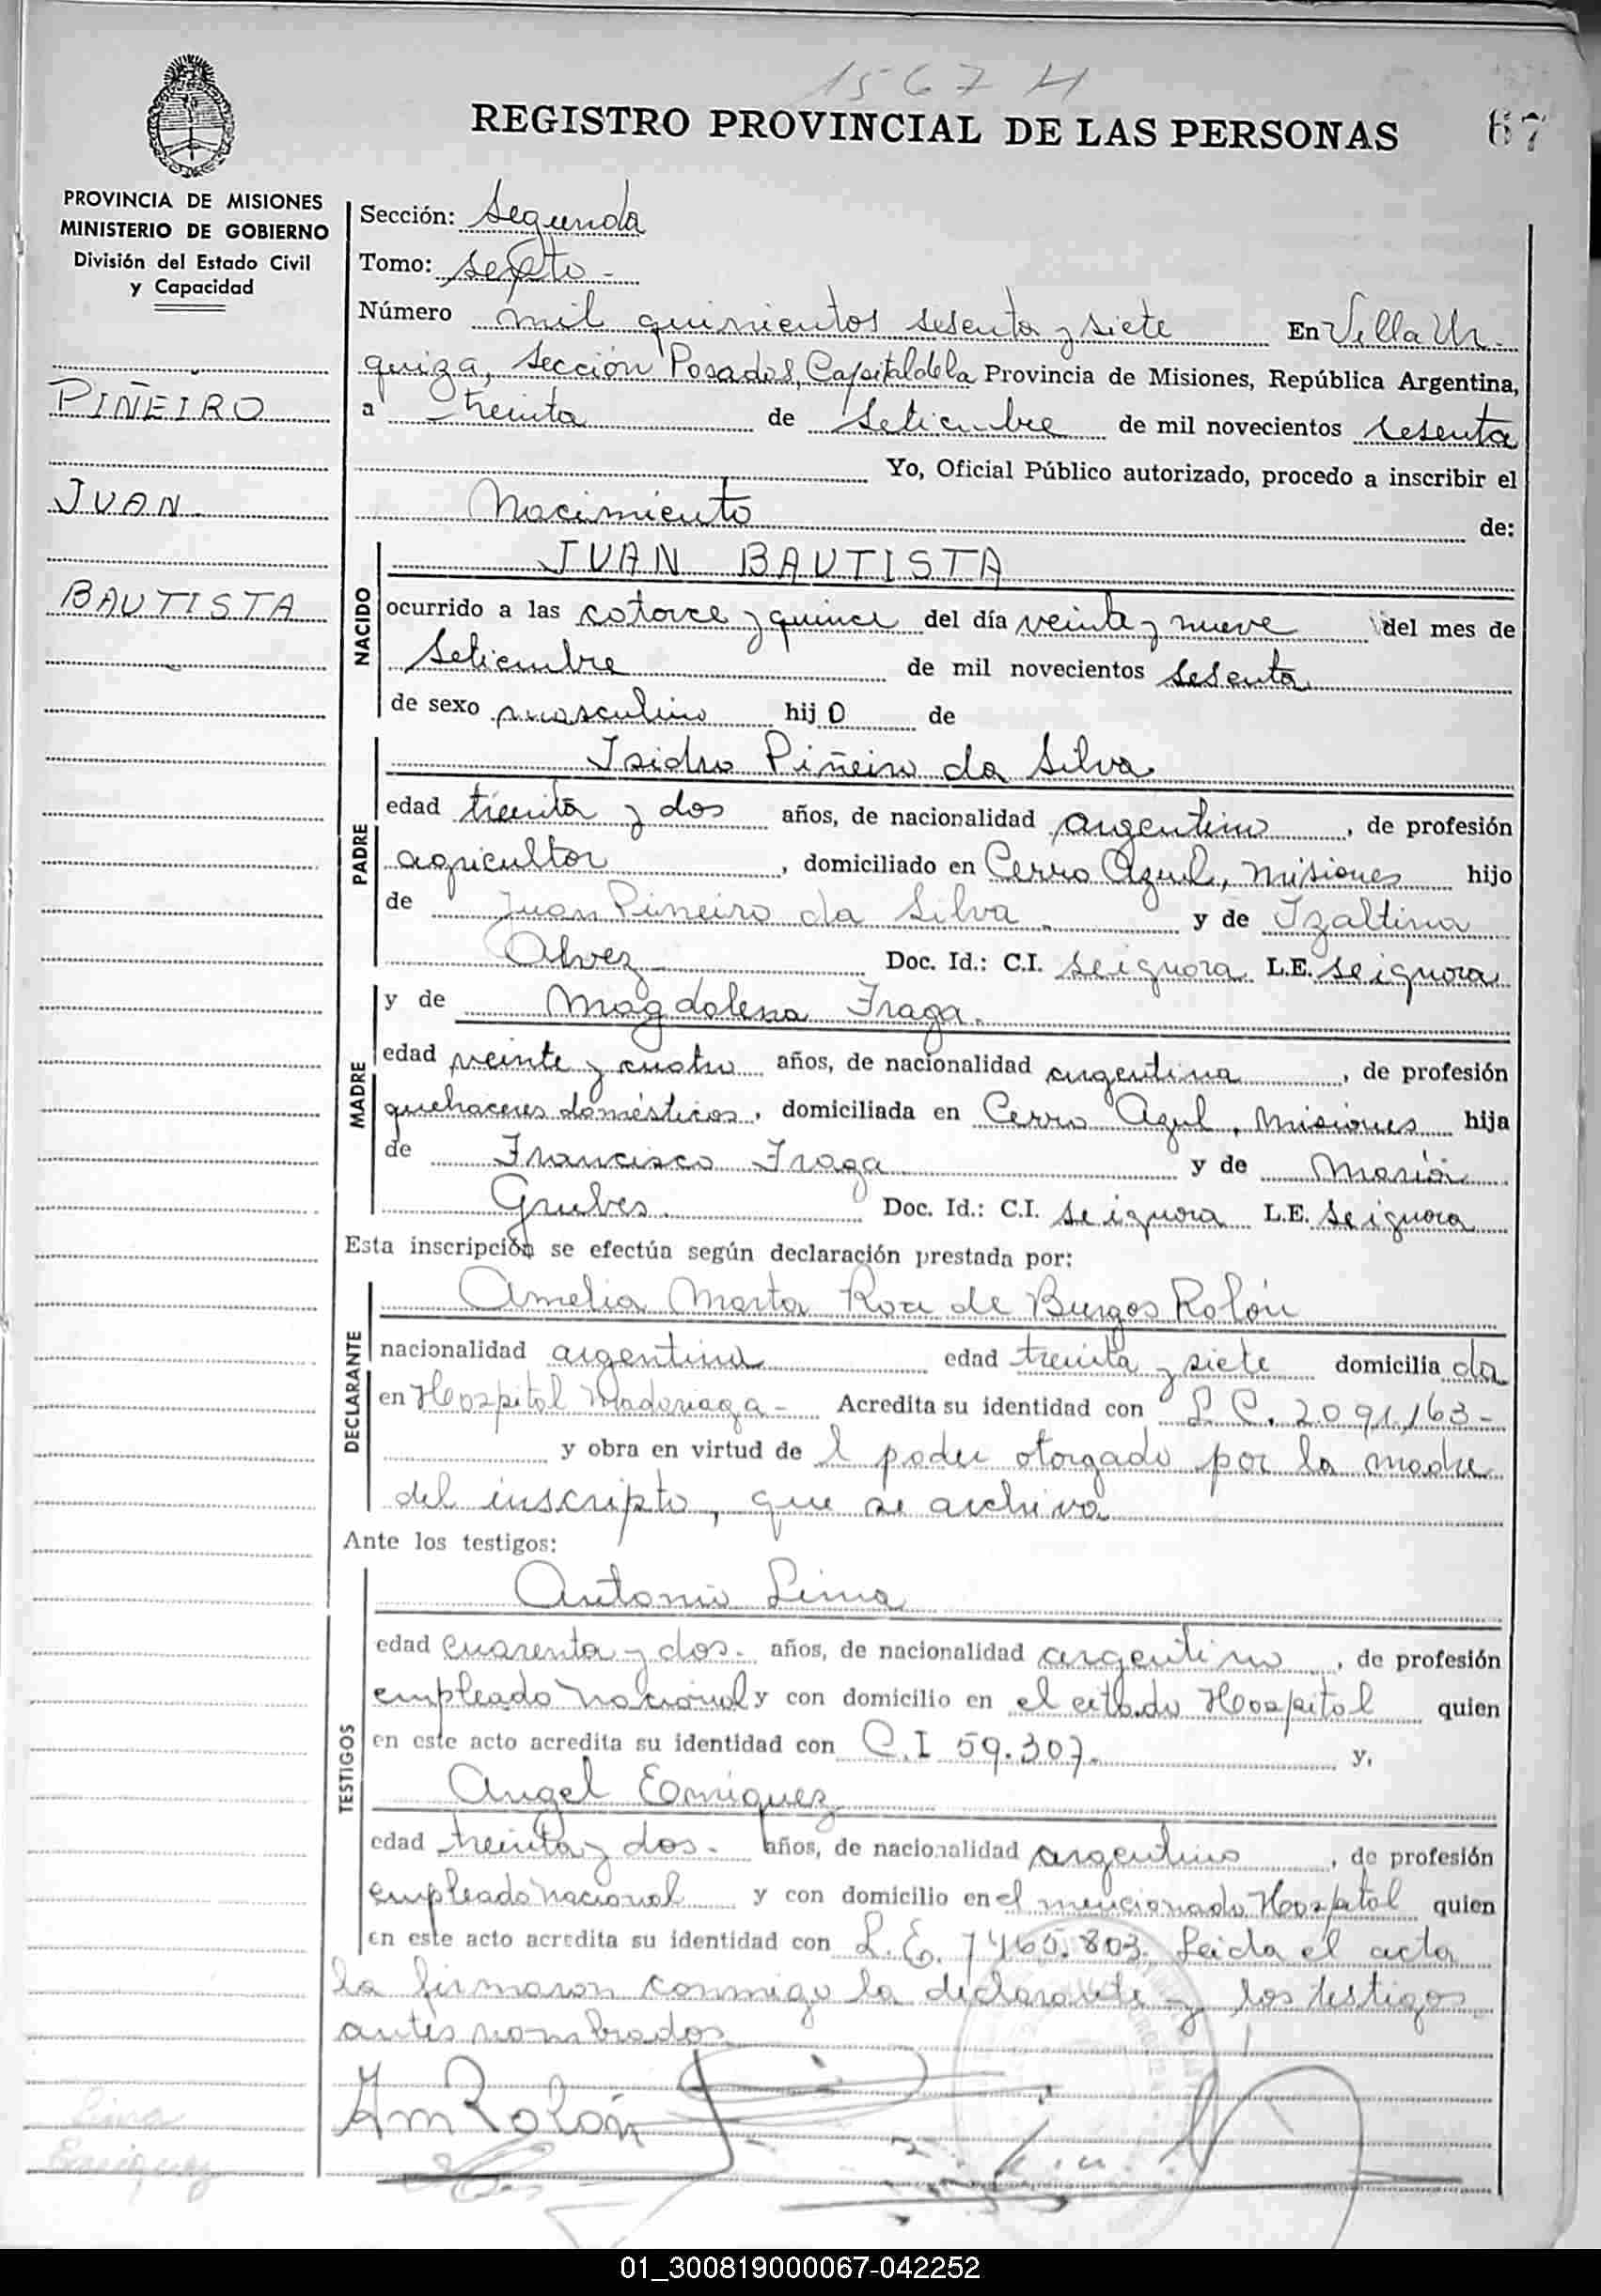 1567 H
REGISTRO PROVINCIAL DE LAS PERSONAS 67
PROVINCIA DE MISIONES
MINISTERIO DE GOBIERNO
División del Estado Civil
y Capacidad
PIÑEIRO
JUAN
BAUTISTA
Sección: Segunda
Tomo: sexto
Número mil quinientos sesenta y siete En Villa Ur-
quiza, Sección Posadas, Capital de la Provincia de Misiones, República Argentina,
a treinta de Setiembre de mil novecientos sesenta
Yo, Oficial Público autorizado, procedo a inscribir el
Nacimiento de:
JUAN BAUTISTA
NACIDO
ocurrido a las catorce y quince del día veinte y nueve del mes de
Setiembre de mil novecientos sesenta
de sexo masculino hijo de
Isidro Piñeiro da Silva
PADRE
edad treinta y dos años, de nacionalidad argentino, de profesión
agricultor, domiciliado en Cerro Azul, Misiones hijo
de Juan Piñeiro da Silva y de Izaltina
Alvez Doc. Id.: C.I. se ignora L.E. se ignora
y de Magdalena Fraga.
MADRE
edad veinte y cuatro años, de nacionalidad argentina, de profesión
quehaceres domésticos, domiciliada en Cerro Azul, Misiones hija
de Francisco Fraga y de María
Doc. Id.: C.I. se ignora L.E. se ignora
Esta inscripción se efectúa según declaración prestada por:
Amelia Marta Roa de Burgos Rolón
DECLARANTE
nacionalidad argentina edad treinta y siete domiciliada
en Hospital Madariaga - Acredita su identidad con L.C. 2.091,163-
y obra en virtud del poder otorgado por la madre
del inscripto, que se archiva
Ante los testigos:
Antonio Lima
TESTIGOS
edad cuarenta y dos- años, de nacionalidad argentino, de profesión
empleado nacional y con domicilio en el citado Hospital quien
en este acto acredita su identidad con C.I 59.307- y,
Angel Enriquez
edad treinta y dos- años, de nacionalidad argentino, de profesión
empleado nacional y con domicilio en el mencionado Hospital quien
en este acto acredita su identidad con L.E. 7465.803. Leida el acta
la firmaron conmigo la declarante y los testigos
antes nombrados
AmRolón
Lima
Enriquez
01_300819000067-042252